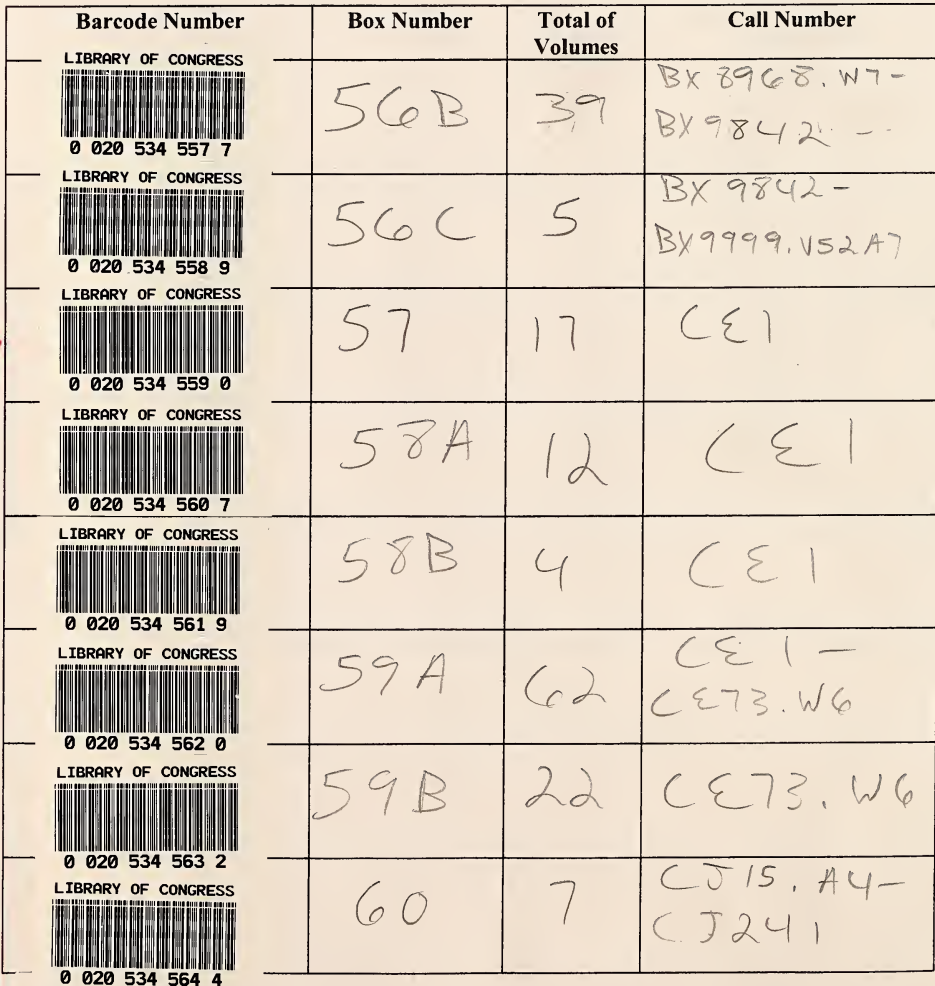 Barcode Number Box Number Total of Volumes Call Number
LIBRARY OF CONGRESS
0 020 534 557 7
56B 39 BX 8968.W7-
BX 9842 -
LIBRARY OF CONGRESS
0 020 534 558 9
56C 5 BX 9842-
BX9999.V52A7
LIBRARY OF CONGRESS
0 020 534 559 0
57 17 CE1
LIBRARY OF CONGRESS
0 020 534 560 7
58A 12 CE1
LIBRARY OF CONGRESS
0 020 534 561 9
58B 4 CE1
LIBRARY OF CONGRESS
0 020 534 562 0
59A 62 CE1-
CE73.W6
LIBRARY OF CONGRESS
0 020 534 563 2
59B 22 CE73.W6
LIBRARY OF CONGRESS
0 020 534 564 4
60 7 CJ15.A4-
CJ241